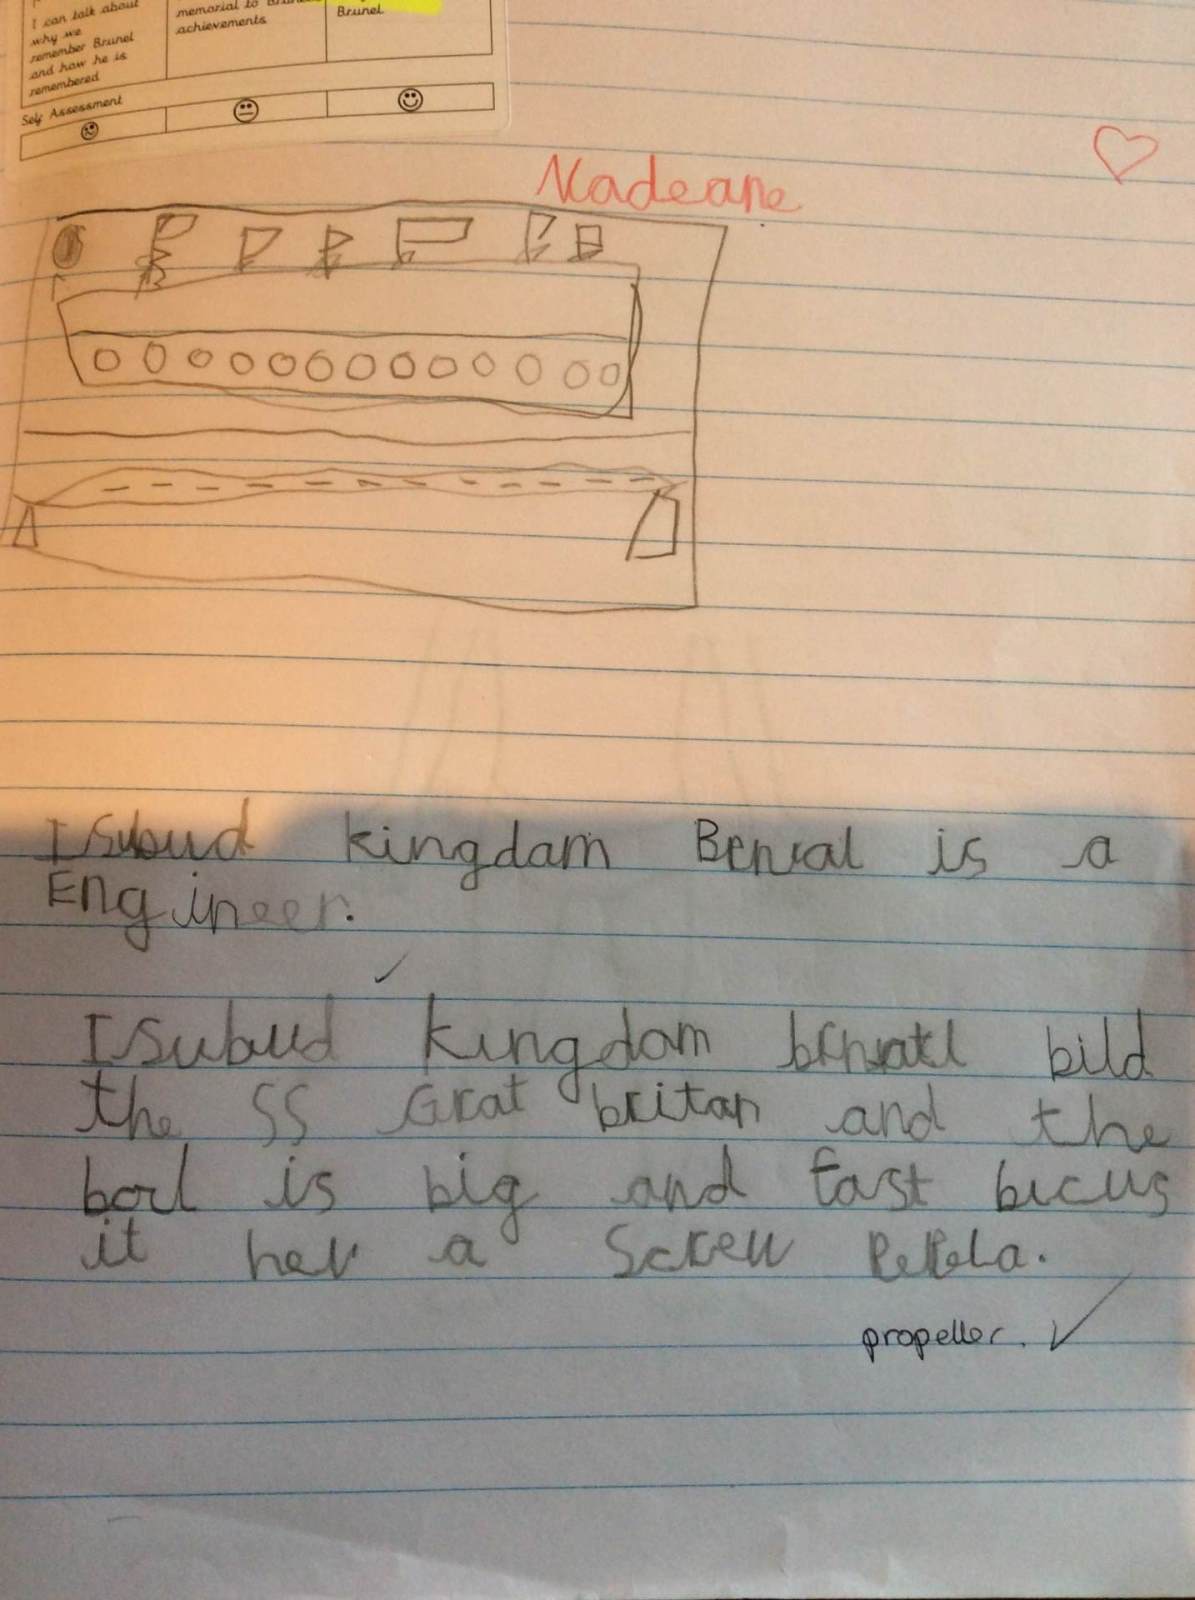 I can talk about
why we
remember Brunel
and how he is
remembered
memorial to
achievements
Brunel
Self Assessment
Nadeane
Isubud kingdam Benral is a
Engineer.
Isubud kingdam bild
the SS Grat britan and the
is big and fast bicus
it her a Screw PePela.
propeller.